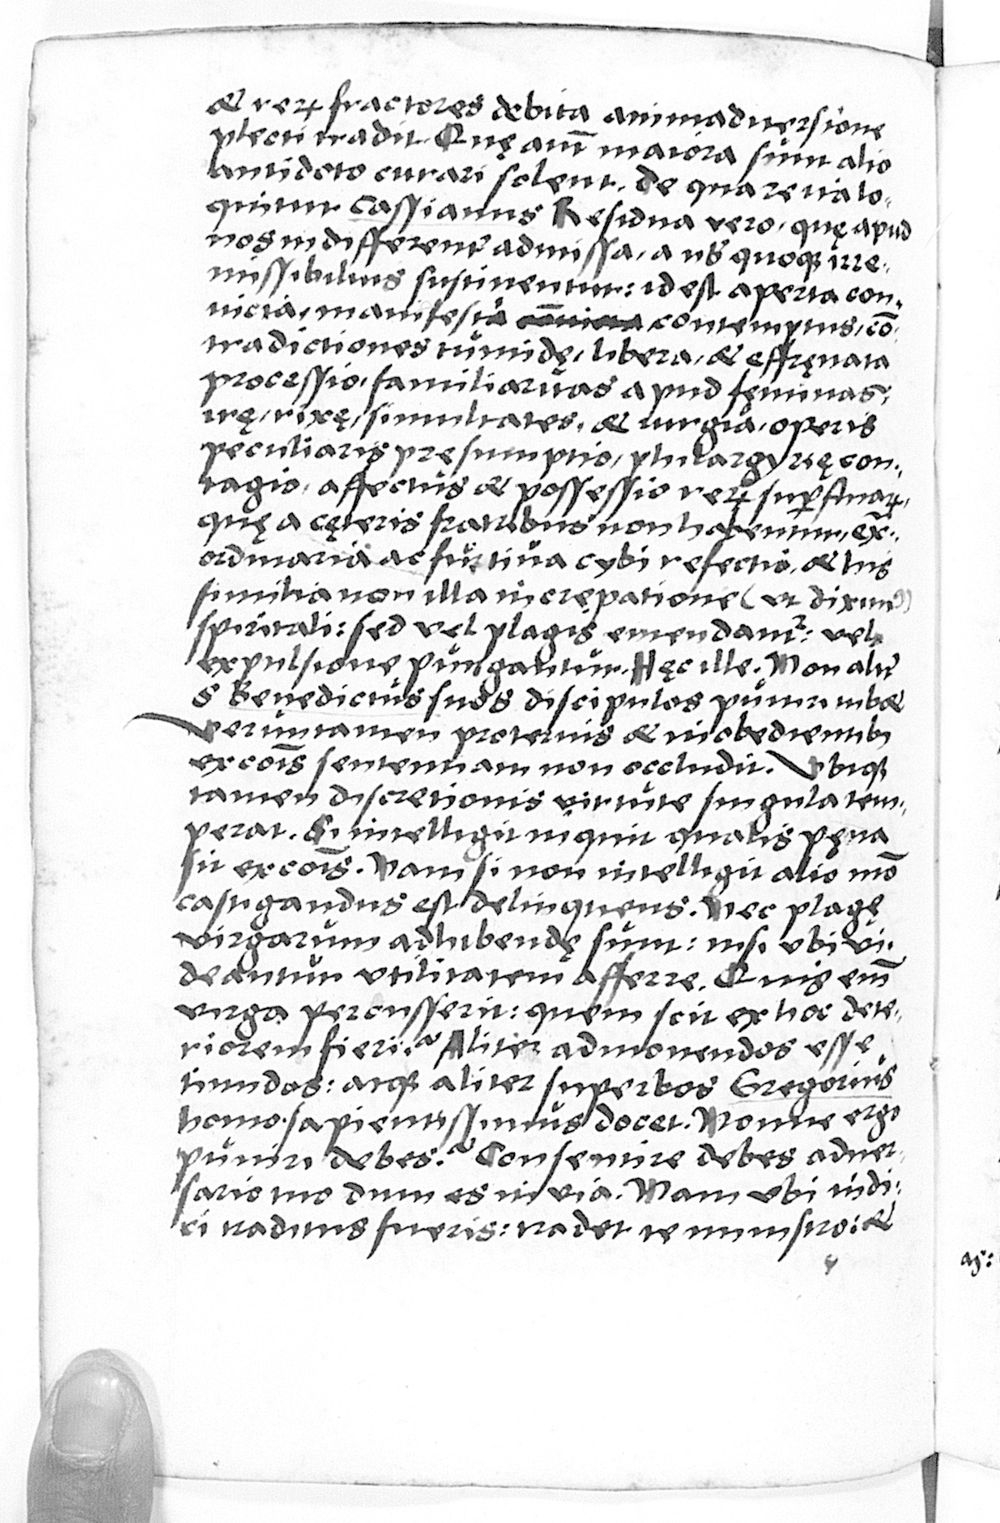 & reꝝ fractores debita animaduersione
plecti tradit. Quę aūt maiora sunt alio
antidoto curari solent. De qua re ita lo-
quitur Cassianus Residua vero, quę apud
nos indifferent̃ admissa, a ꝗuoqꝫ irre-
missibilius sustinentur: id est aperta con-
uicia, manifesta contemptus, cō-
tradictiones tumidę, libera, & effrenata
processio, familiaritas apud fęminas,
irę, rixę, simultates, & iurgia, operis
peculiaris presumptio, philargyrię con-
tagio, affectus & possessio reꝝ suꝑfluaꝝ,
quę a cęteris fratribus non habentur, ex-
ordinaria ac furtiua cybi refectio, & his
similia non illa increpatione (vt dixim⁹)
spiritali: sed vel plagis emendant᷑: vel
expulsione purgantur. Hęc ille. Non alit̃
S Benedictus suos discipulos puniri iubet
Veruntamen proteruis & inobedientibꝫ
excoīs sententiam non occludit. Vbiqꝫ
tamen discretionis virtute singula tem-
perat. Si intelligit inquit qualis pęna
sit excoīs. Nam si non intelligit alio mō
castigandus est delinquens. Nec plagę
virgarum adhibendę sunt: nisi vbi vi-
deantur vtilitatem afferre. Quis enī
virga percusserit: quem scit ex hoc dete-
riorem fieri? Aliter admonendos esse
timidos: atqꝫ aliter superbos Gregorius
homo sapientissimus docet. Nonne ergo
puniri debes? Consentire debes aduer-
sario tuo dum es in via. Nam vbi iudi-
ci traditus fueris: tradet te ministro: &